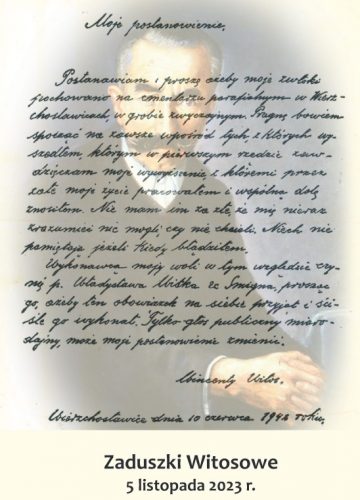 Moje postanowienie.
Postanawiam i proszę ażeby moje zwłoki
pochowano na cmentarzu parafialnym w Wierz-
chosławicach, w grobie zwyczajnym. Pragnę bowiem
spocząć na zawsze wpośród tych, z których wy-
szedłem, którym w pierwszym rzędzie zaw-
dzięczam moje wywyższenie, z któremi przez
całe moje życie pracowałem i wspólną dolę
znosiłem. Nie mam im za złe, że mię nieraz
zrozumieć nie mogli czy nie chcieli. Niech nie
pamiętają jeżeli kiedy błądziłem.
Wykonawcą mojej woli w tym względzie czy-
nię p. Władysława Witka ze Śmigna, prosząc
go, ażeby ten obowiązek na siebie przyjął i ści-
śle go wykonał. Tylko głos publiczny miaro-
dajny, może moje postanowienie zmienić.
Wincenty Witos.
Wierzchosławice dnia 10 czerwca roku,
Zaduszki Witosowe
5 listopada 2023 r.